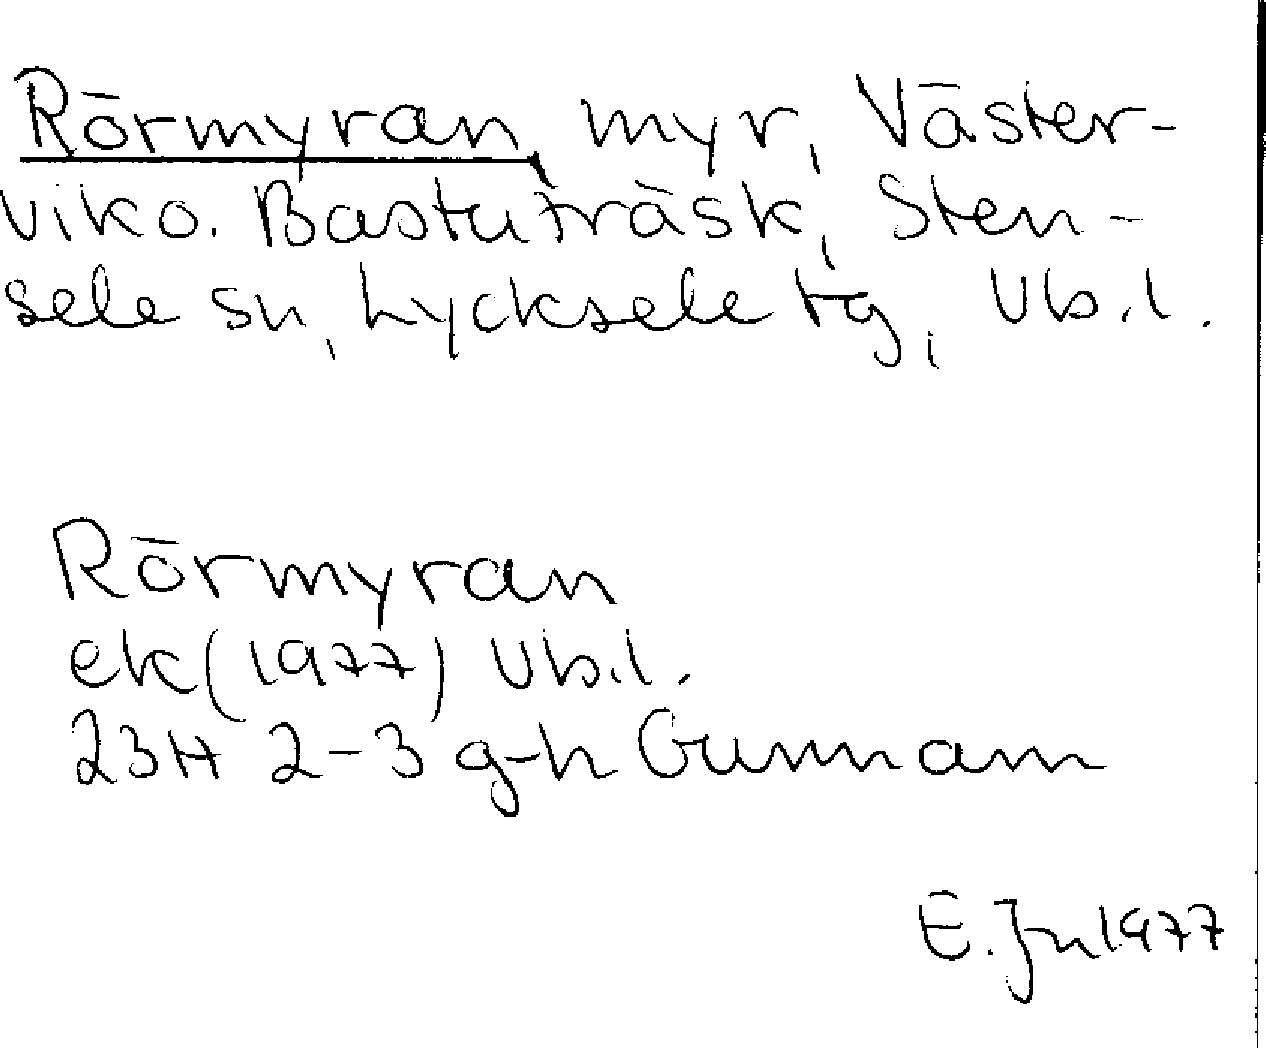 Rörmyran, myr, Väster-
vik o. Bastuträsk, Sten-
sele sn, Lycksele tg, Vb.l.
Rörmyran
ek (1977) Vb.l.
23H 2-3 g-h Gunnarn
E. Jn 1977